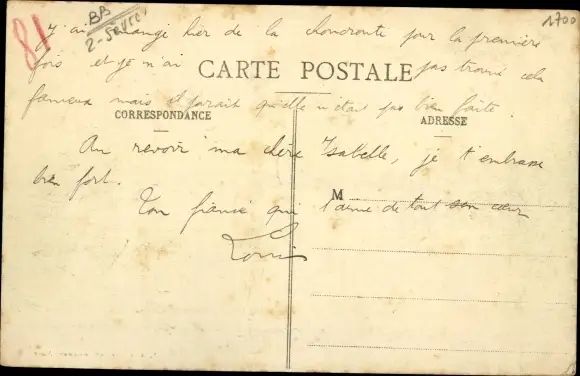 BB
2-Sèvres
1700
81
J'ai mangé hier de la choucroute pour la première
fois et je n'ai pas trouvé cela
CARTE POSTALE
fameux mais il parait qu'elle n'était pas bien faite.
CORRESPONDANCE
ADRESSE
Au revoir ma chère Isabelle, je t'embrasse
bien fort.
M
Ton fiancé qui t'aime de tout son cœur
Louis